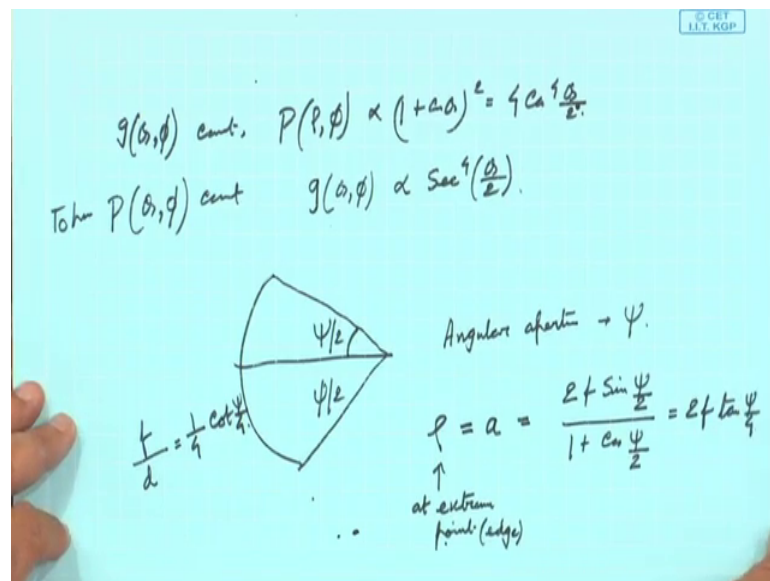 © CET
I.I.T. KGP
g(θ,φ) const. P(ρ,φ) ∝ (1+cosθ)² = 4 Cos⁴ θ/2.
P(θ,φ) const g(θ,φ) ∝ Sec⁴(θ/2).
Ψ/2
Angular aperture → Ψ.
Ψ/2
f/d = 1/4 cot Ψ/4.
ρ = a = 2f Sin Ψ/2 / 1 + Cos Ψ/2 = 2f tan Ψ/4
↑
at extreme
point (edge)